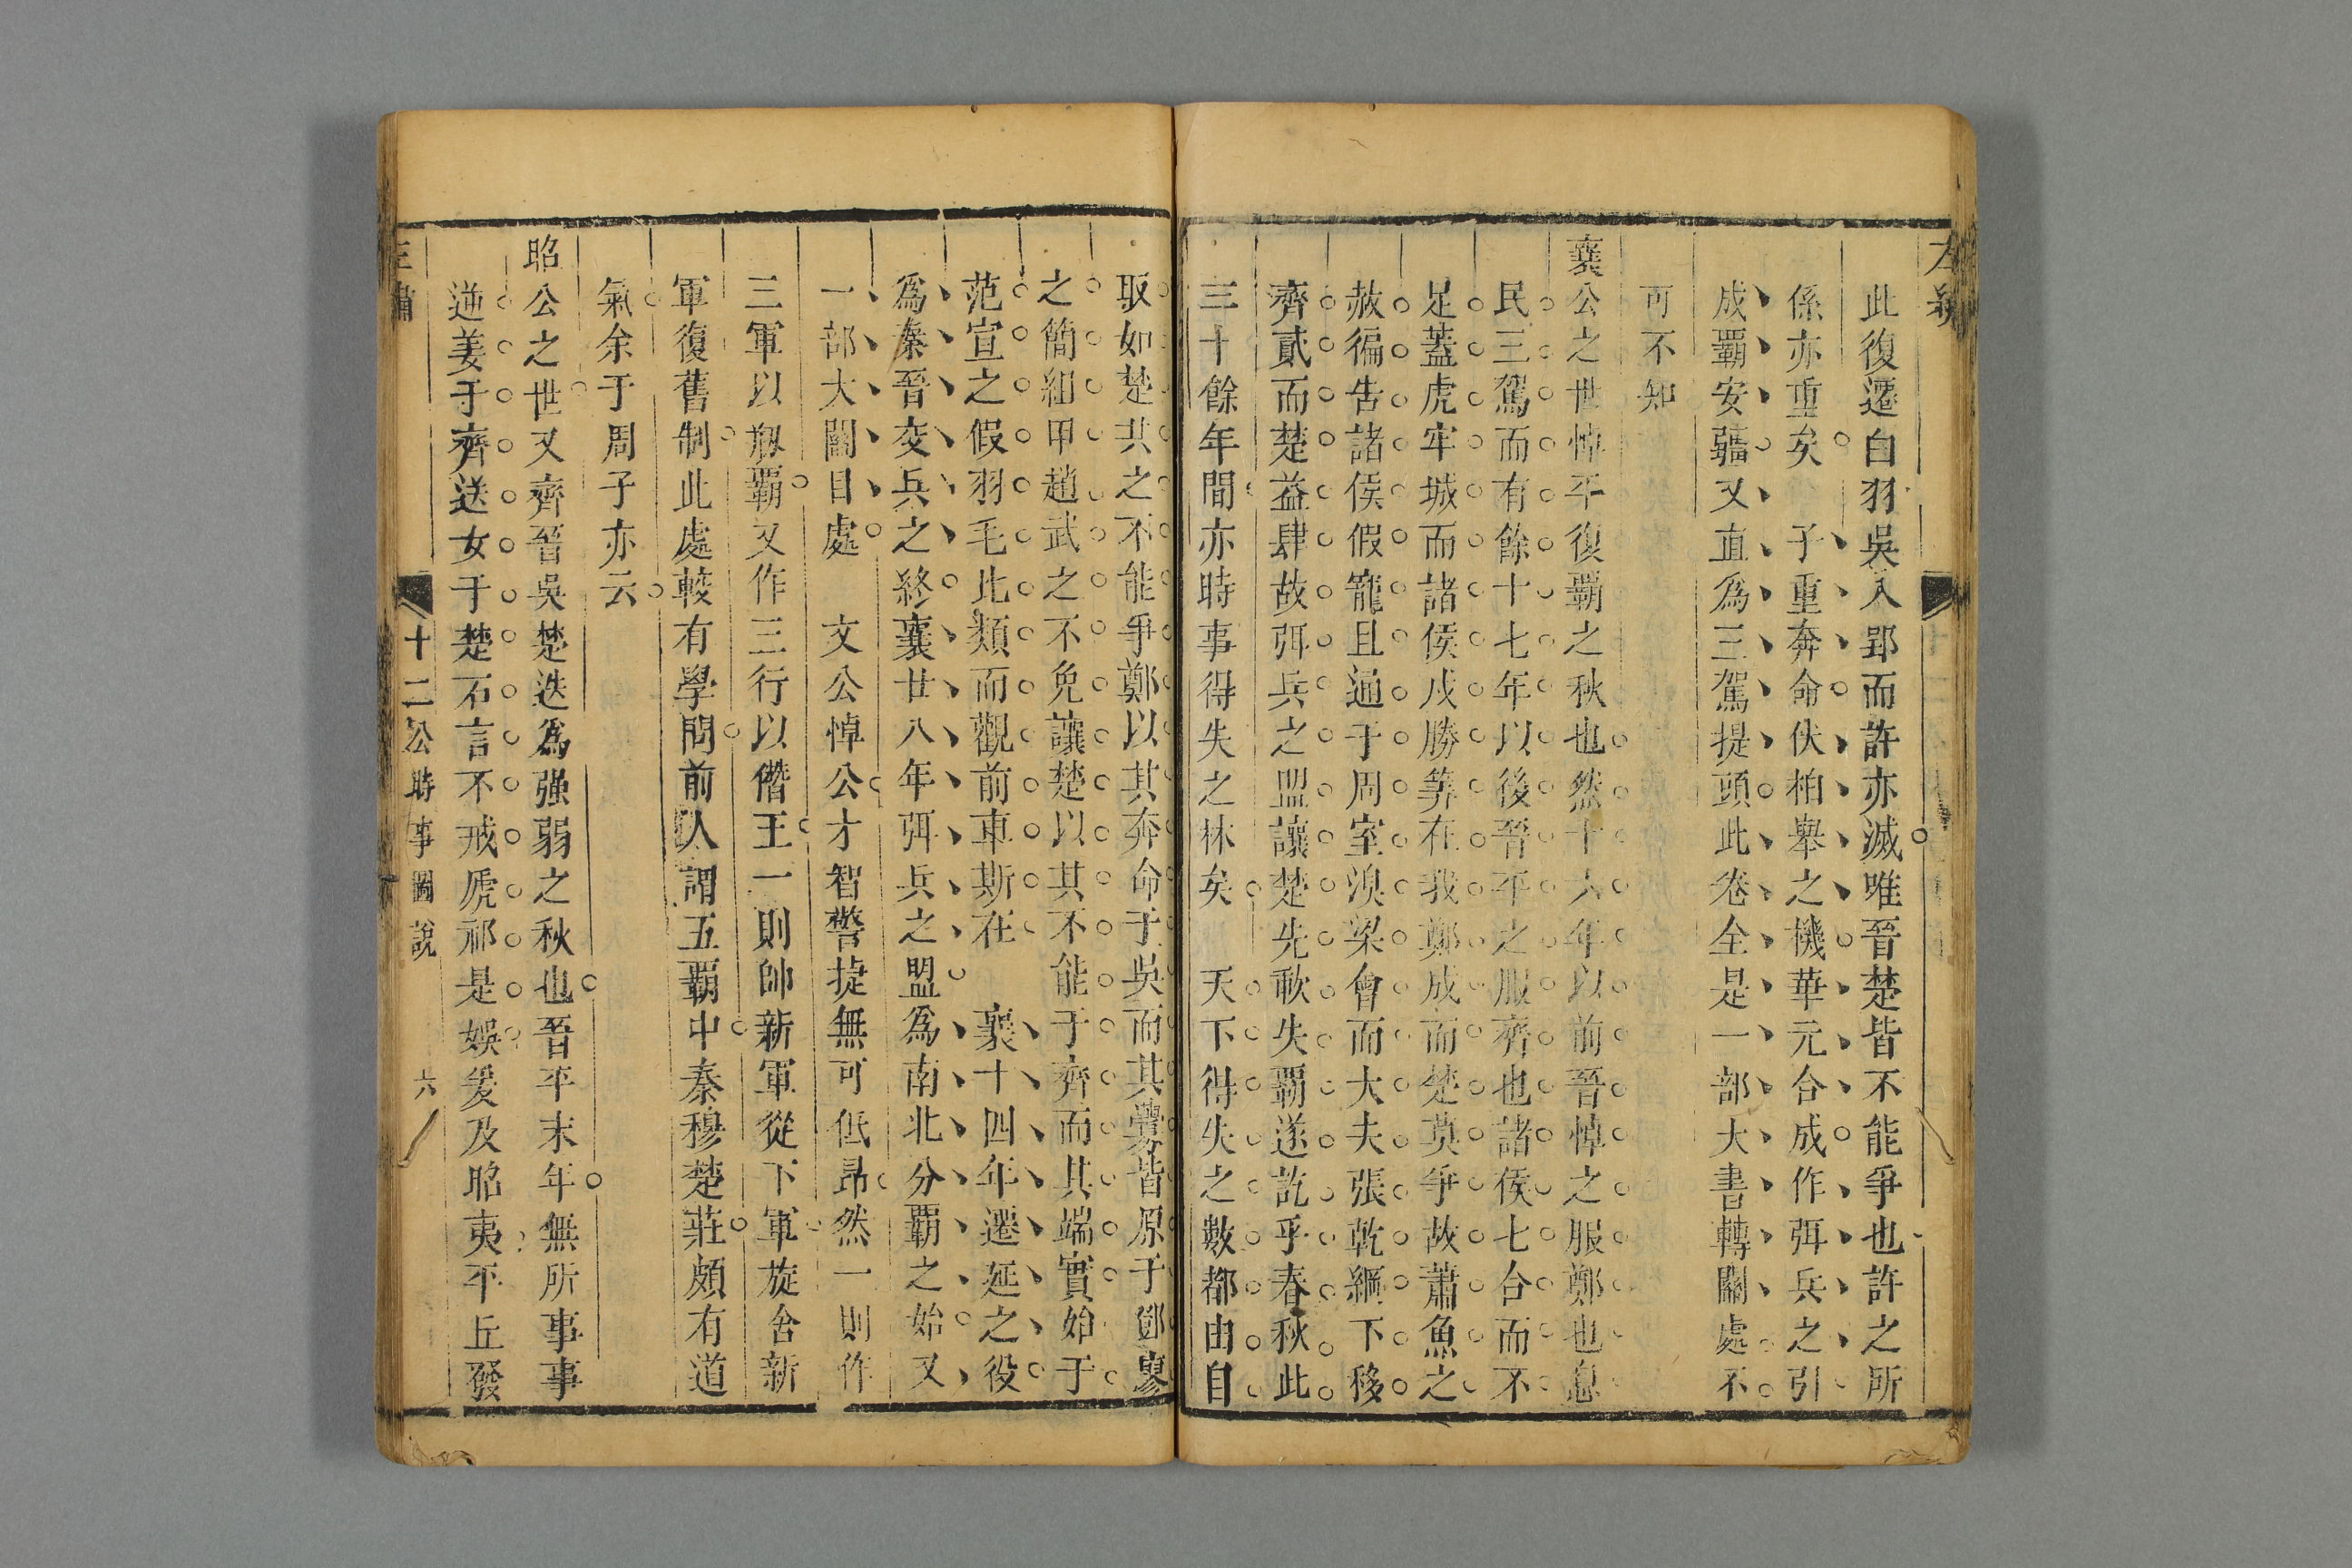 左繡
此復遷白羽吳入郢而許亦滅唯晉楚皆不能爭也許之所
係亦重矣　子重奔命伏柏舉之機華元合成作弭兵之引
成霸安疆又直為三駕提頭此卷全是一部大書轉關處不
可不知
襄公之世悼平復霸之秋也然十六年以前晉悼之服鄭也息
民三駕而有餘十七年以後晉平之服齊也諸侯七合而不
足蓋虎牢城而諸侯戍勝筭在我鄭成而楚莫爭故蕭魚之
赦徧告諸侯假寵且通于周室溴梁會而大夫張乾綱下移
齊貳而楚益肆故弭兵之盟讓楚先歃失霸遂訖乎春秋此
三十餘年間亦時事得失之林矣　天下得失之數都由自
取如楚共之不能爭鄭以其奔命于吳而其釁皆原于鄧廖
之簡組甲趙武之不免讓楚以其不能于齊而其端實始于
范宣之假羽毛比類而觀前車斯在　襄十四年遷延之役
為秦晉交兵之終襄廿八年弭兵之盟為南北分霸之始又
一部大關目處　文公悼公才智警捷無可低昻然一則作
三軍以剙霸又作三行以僭王一則帥新軍從下軍旋舍新
軍復舊制此處較有學問前人謂五霸中秦穆楚莊頗有道
氣余于周子亦云
昭公之世又齊晉吳楚迭為强弱之秋也晉平末年無所事事
逆姜于齊送女于楚石言不戒虒祁是娛爰及昭夷平丘發
左繡　十二公時事圖說　六